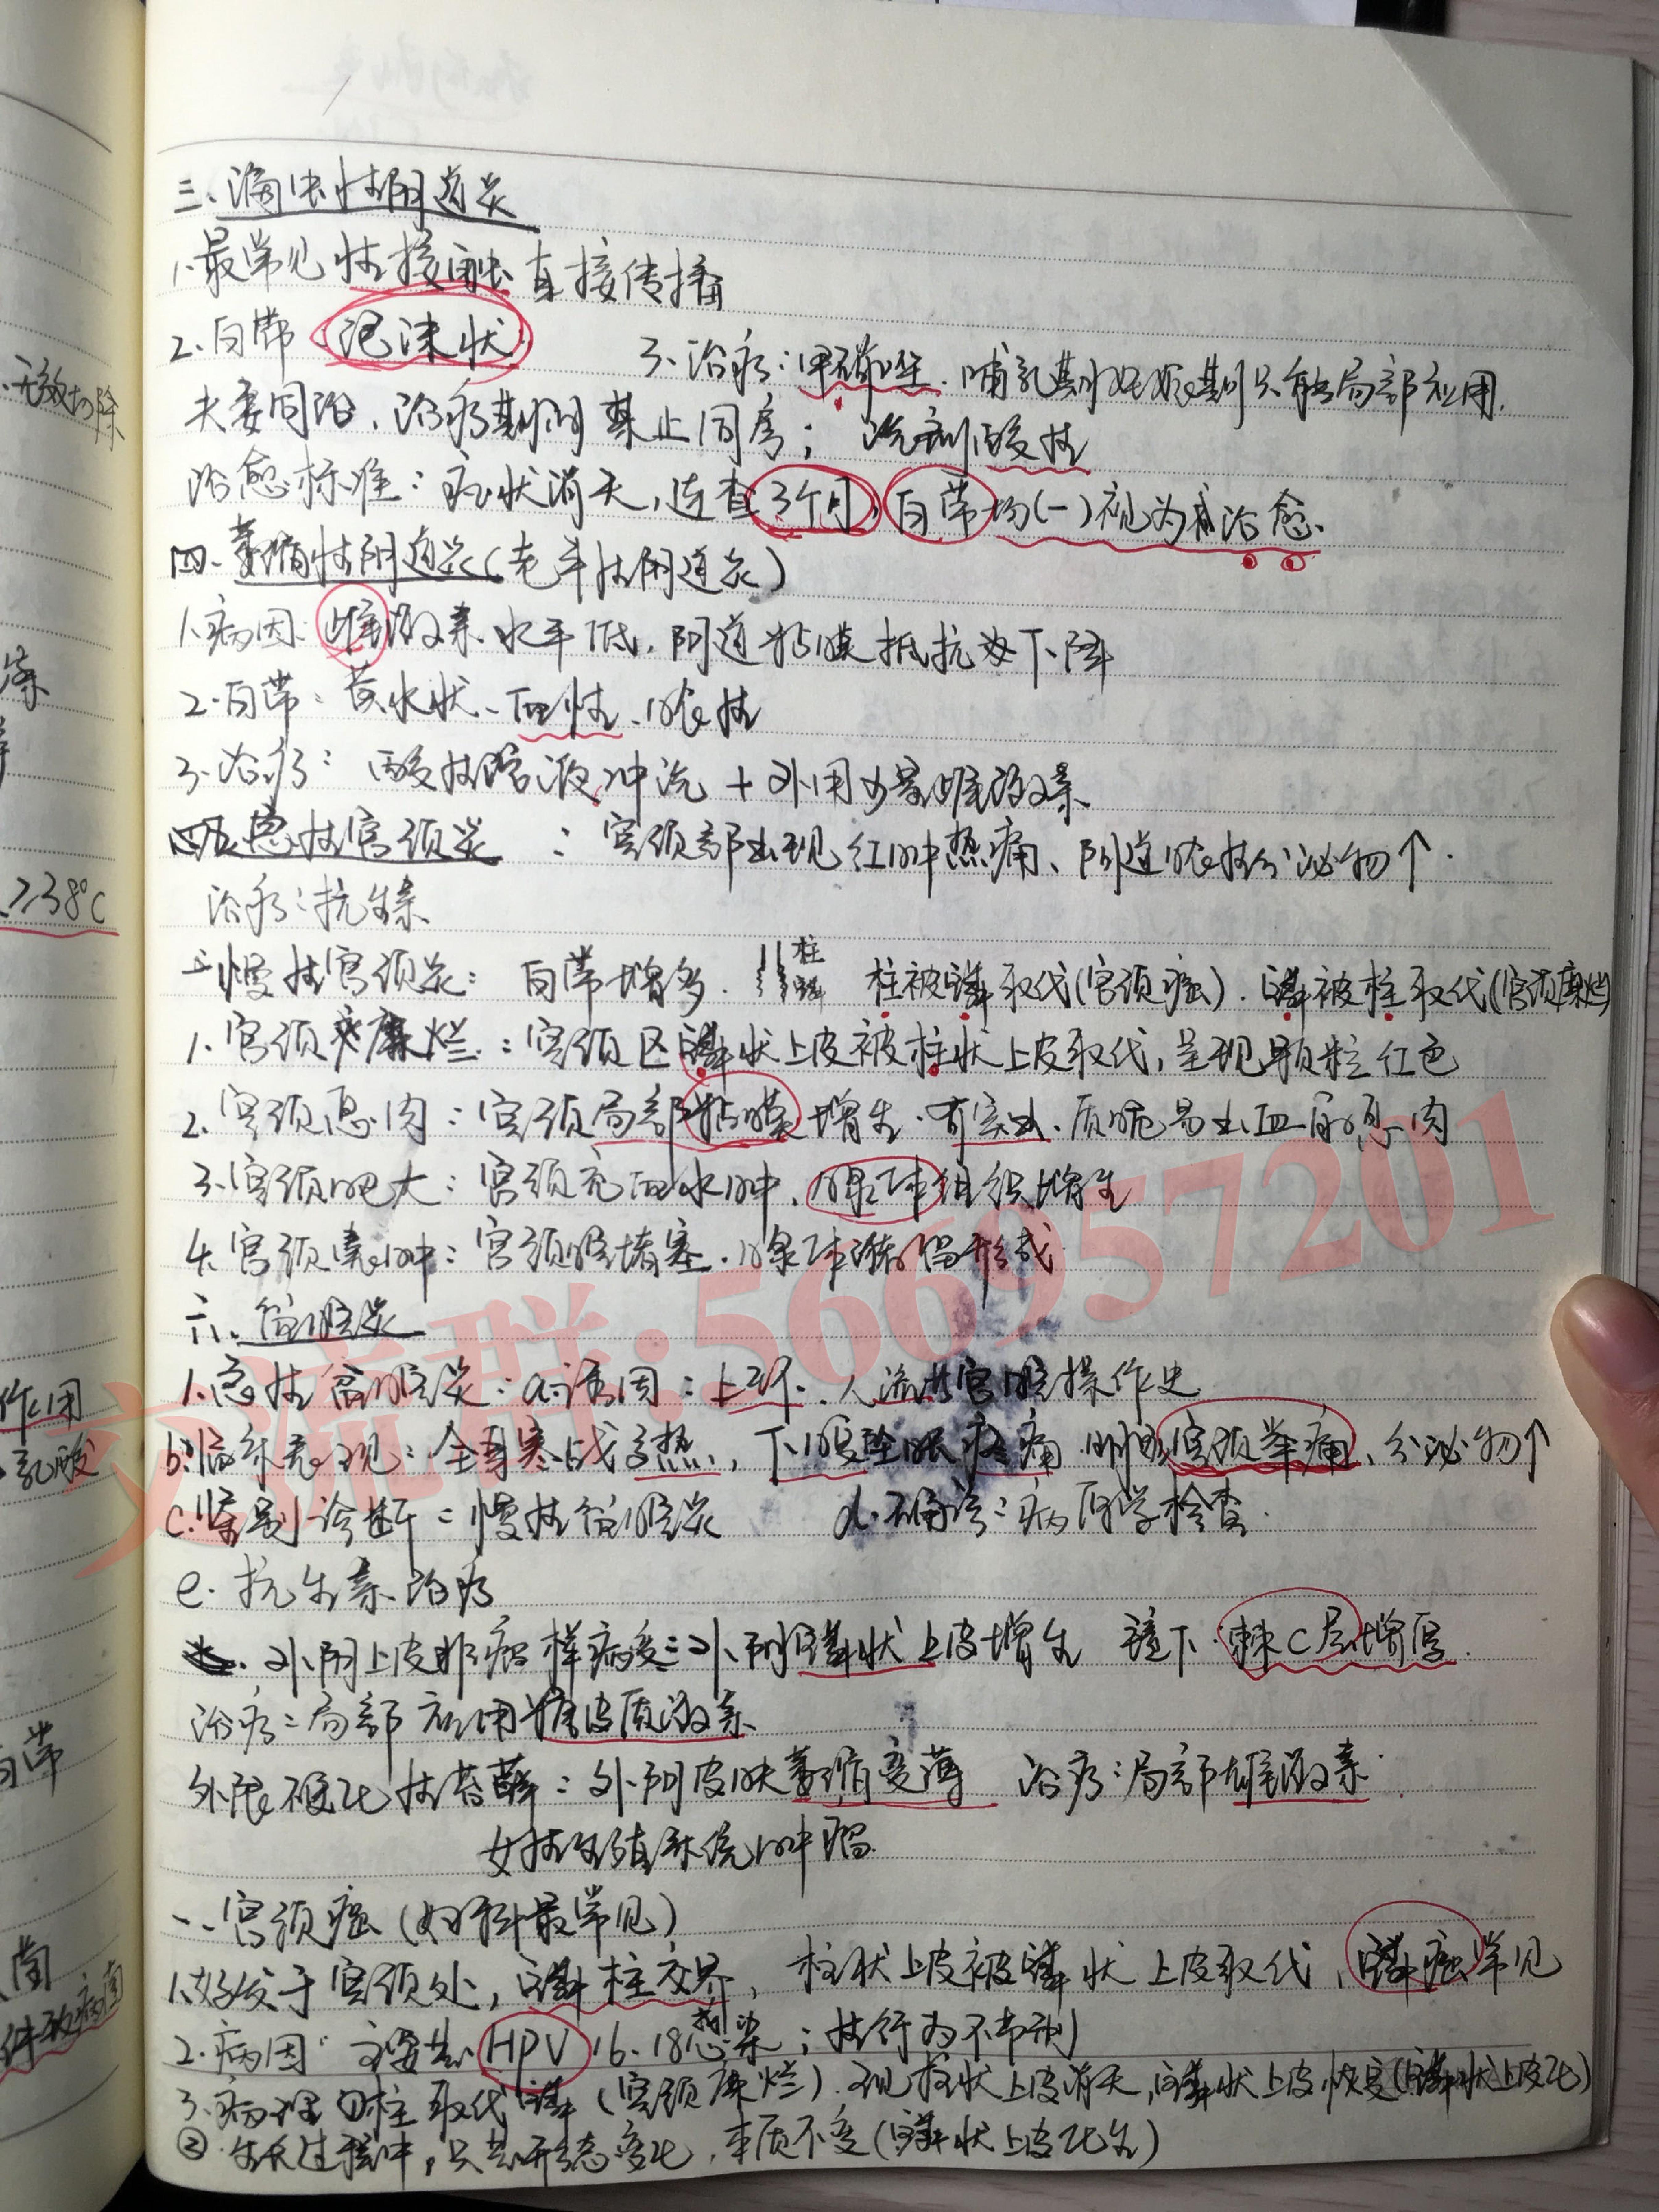 三、滴虫性阴道炎
1.最常见性接触直接传播
2.白带 泡沫状 3.治疗:甲硝唑.哺乳期妊娠期只能局部应用.
夫妻同治,治疗期间禁止同房; 洗剂酸性
治愈标准:症状消失,连查3个月,白带均(一)视为治愈.
四、萎缩性阴道炎(老年性阴道炎)
1.病因:雌激素水平低,阴道粘膜抵抗力下降
2.白带:黄水状、血性、脓性
3.治疗:酸性溶液冲洗+外用少量雌激素
五急性宫颈炎:宫颈部出现红肿热痛、阴道脓性分泌物↑.
治疗:抗生素
慢性宫颈炎:白带增多. 柱 鳞 柱被鳞取代(宫颈癌).鳞被柱取代(宫颈糜烂)
1.宫颈糜烂:宫颈区鳞状上皮被柱状上皮取代,呈现颗粒红色
2.宫颈息肉:宫颈局部粘膜增生.有突出.质脆易出血息肉
3.宫颈肥大:宫颈充血水肿.腺体组织增生
4.宫颈囊肿:宫颈腔堵塞.腺体潴留形成
六、盆腔炎
1.急性盆腔炎:a.诱因:上环、人流宫腔操作史
b.临床表现:全身寒战高热,下腹坠胀疼痛.宫颈举痛、分泌物↑
c.鉴别诊断:慢性盆腔炎 d.确诊:病原学检查.
e.抗生素治疗
外阴上皮非瘤样病变:外阴鳞状上皮增生 镜下.棘C层增厚.
治疗:局部应用糖皮质激素
外阴硬化性苔藓:外阴皮肤萎缩变薄 治疗:局部雄激素.
女性生殖系统肿瘤
一、宫颈癌(妇科最常见)
1.好发于宫颈处,鳞柱交界,柱状上皮被鳞状上皮取代,鳞癌常见
2.病因 主要是HPV 16、18感染;性行为不节制
3.病理①柱取代鳞(宫颈糜烂).现柱状上皮消失,鳞状上皮恢复(鳞状上皮化)
②.生长过程中,只是形态变化,本质不变(鳞状上皮化生)
无效切除
≥38℃
作用
乳酸
白带
菌
件致病菌
交流群:566957201